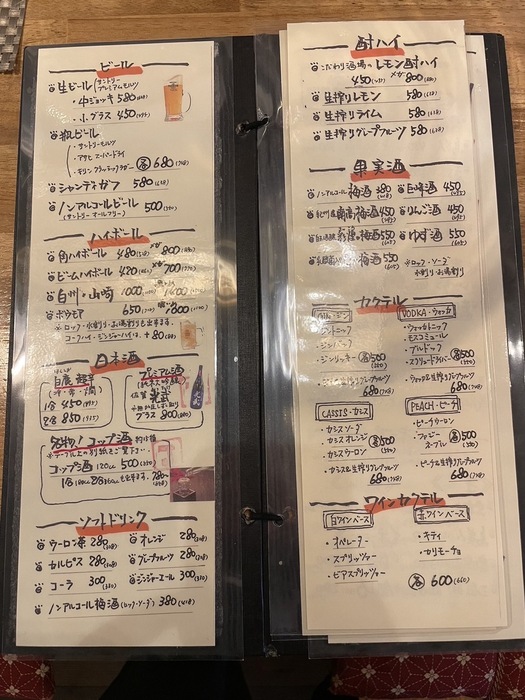 ビール
生ビール (サントリー プレミアムモルツ)
・中ジョッキ 580(638)
・小グラス 450(495)
瓶ビール
・サントリーモルツ
・アサヒ スーパードライ
・キリン クラシックラガー 各680(748)
シャンディガフ 580(638)
ノンアルコールビール 500(550)
(サントリー オールフリー)
ハイボール
角ハイボール 480 メガ 800
ビームハイボール 420 メガ 700
白州・山崎 1000
ボウモア 650 1800
※ロック・水割り・お湯割りも出来ます。
コークハイ・ジンジャーハイは、+80(88)
日本酒
450(495)
850(935)
プレミアム酒
佐賀 光武
グラス 800(880)
名物!コップ酒
※テーブル上の別紙をご覧下さい。
コップ酒 120cc 500(550)
ソフトドリンク
ウーロン茶 280(308)
オレンジ 280(308)
カルピス 280(308)
グレープフルーツ 280(308)
コーラ 300(330)
ジンジャーエール 300(330)
ノンアルコール梅酒(ロック・ソーダ) 380(418)
酎ハイ
こだわり酒場のレモン酎ハイ
450(495) メガ 800(880)
生搾りレモン 580(638)
生搾りライム 580(638)
生搾りグレープフルーツ 580(638)
果実酒
ノンアルコール梅酒 380(418)
白桃酒 450(495)
南高梅酒 450(495)
りんご酒 450(495)
梅酒 550(605)
ゆず酒 550(605)
梅酒 550(605)
※ロック・ソーダ
水割り・お湯割り
カクテル
ジン
VODKA・ウォッカ
ジントニック
ジンバック
・ジンリッキー 各500(550)
生搾りグレープフルーツ
680(748)
・ウォッカトニック
・モスコミュール
・ブルドッグ
・スクリュードライバー 各500(550)
・ウォッカ&生搾りグレープフルーツ
680(748)
CASSIS・カシス
PEACH・ピーチ
・カシスソーダ
・カシスオレンジ 各500(550)
・カシスウーロン
・カシス&生搾りグレープフルーツ
680(748)
・ピーチウーロン
・ファジーネーブル 各500(550)
・ピーチ&生搾りグレープフルーツ
680(748)
ワインカクテル
白ワインベース
赤ワインベース
・オペレーター
・スプリッツァー
・ビアスプリッツァー
・キティ
・カリモーチョ
各600(660)